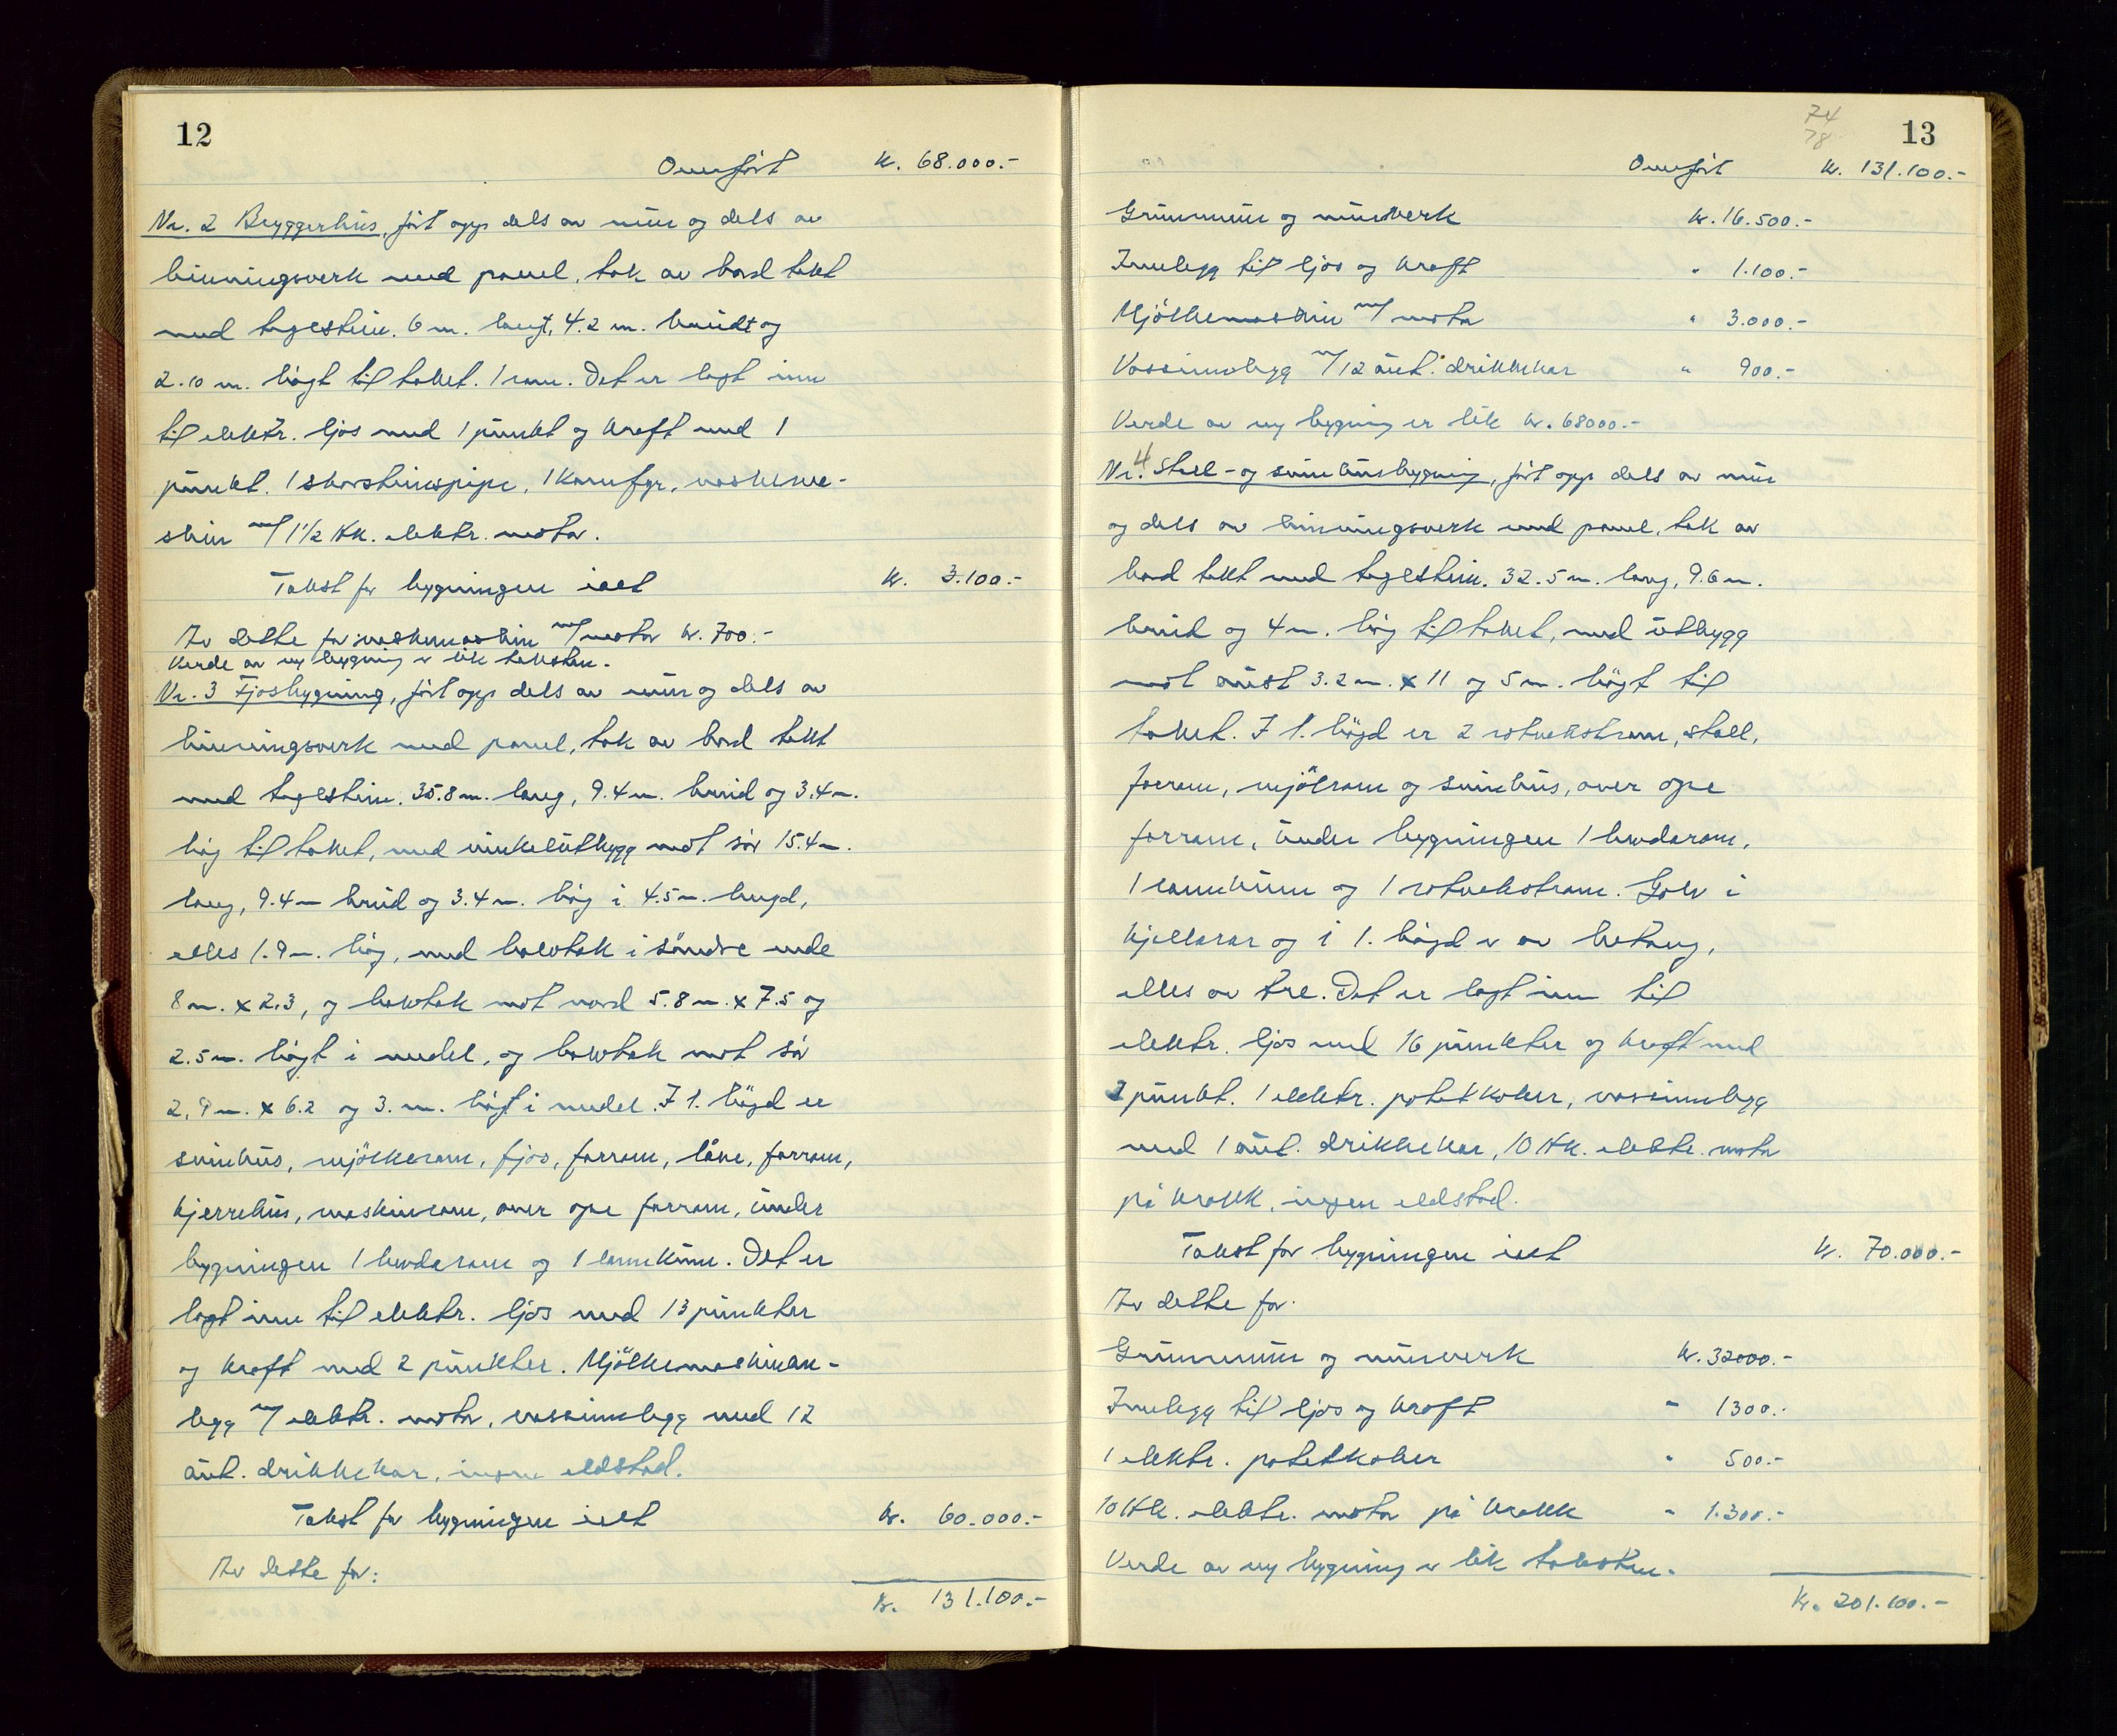 12
Overført kr. 68.000.-
Nr. 2 Bryggerhus, ført opp dels av mur og dels av
binningsverk med panel, tak av bord tekt
med teglstein. 6 m. langt, 4.2 m. breidt og
2.10 m. høgt til taket. 1 rom. Det er lagt inn
til elektr. ljos med 1 punkt og kraft med 1
punkt. 1 skorsteinspipe, 1 komfyr, vaskema-
skin m/ 1 1/2 Hk. elektr. motor.
Takst for bygningen i alt kr. 3.100.-
Av dette for vaskemaskin m/motor kr. 700.-
Verde av ny bygning er lik taksten.
Nr. 3 Fjosbygning, ført opp dels av mur og dels av
binningsverk med panel, tak av bord tekt
med teglstein. 35.8 m. lang, 9.4 m. breid og 3.4 m.
høg til taket, med vinkelutbygg mot sør 15.4 m.
lang, 9.4 m breid og 3.4 m. høg i 4.5 m. lengd,
elles 1.9 m. høg, med halvtak i søndre ende
8 m. x 2.3, og halvtak mot nord 5.8 m. x 7.5 og
2.5 m. høgt i medel, og halvtak mot sør
2.9 m. x 6.2 og 3. m. høgt i medel. I 1. høgd er
svinhus, mjølkerom, fjos, forrom, låve, forrom,
kjerrehus, maskinrom, over ope forrom, under
bygningen 1 lander­rom og 1 landkum. Det er
lagt inn til elektr. ljos med 13 punkter
og kraft med 2 punkter. Mjølkemaskinan-
legg m/ elektr. motor, vassinnlegg med 12
aut. drikkekar, ingen eldstad.
Takst for bygningen i alt kr. 60.000.-
Av dette for:
kr. 131.100.-
74
78
13
Overført kr. 131.100.-
Grunnmur og murverk kr. 16.500.-
Innlegg til ljos og kraft " 1.100.-
Mjølkemaskin m/ motor " 3.000.-
Vassinnlegg m/12 aut. drikkekar " 900.-
Verde av ny bygning er lik kr. 68000.-
Nr. 4 Stall- og svinehusbygning, ført opp dels av mur
og dels av binningsverk med panel, tak av
bord tekt med teglstein. 32.5 m. lang, 9.6 m.
breid og 4 m. høg til taket, med utbygg
mot aust 3.2 m. x 11 og 5 m. høgt til
taket. I 1. høgd er 2 rotvekstrom, stall,
forrom, mjølrom og svinhus, over ope
forrom, under bygningen 1
1 landkum og 1 rotvekstrom. Golv i
kjellarar og i 1. høgd er av betong,
elles av tre. Det er lagt inn til
elektr. ljos med 16 punkter og kraft med
2 punkt. 1 elektr. potetkoker, vassinnlegg
med 1 aut. drikkekar, 10 Hk. elektr. motor
på krakk, ingen eldstad.
Takst for bygningen i alt kr. 70.000.-
Av dette for:
Grunnmur og murverk kr. 32000.-
Innlegg til ljos og kraft " 1300.-
1 elektr. potetkoker " 500.-
10 Hk. elektr. motor på krakk " 1.300.-
Verde av ny bygning er lik taksten.
kr. 201.100.-